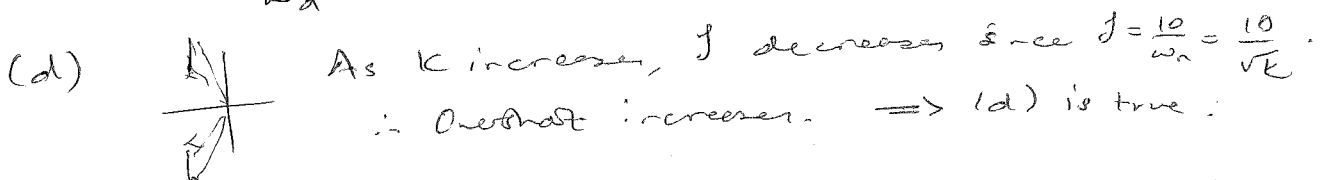 (d) As K increases, ζ decreases since ζ = 10/ωn = 10/√K .
∴ Overshoot increases. => (d) is true.